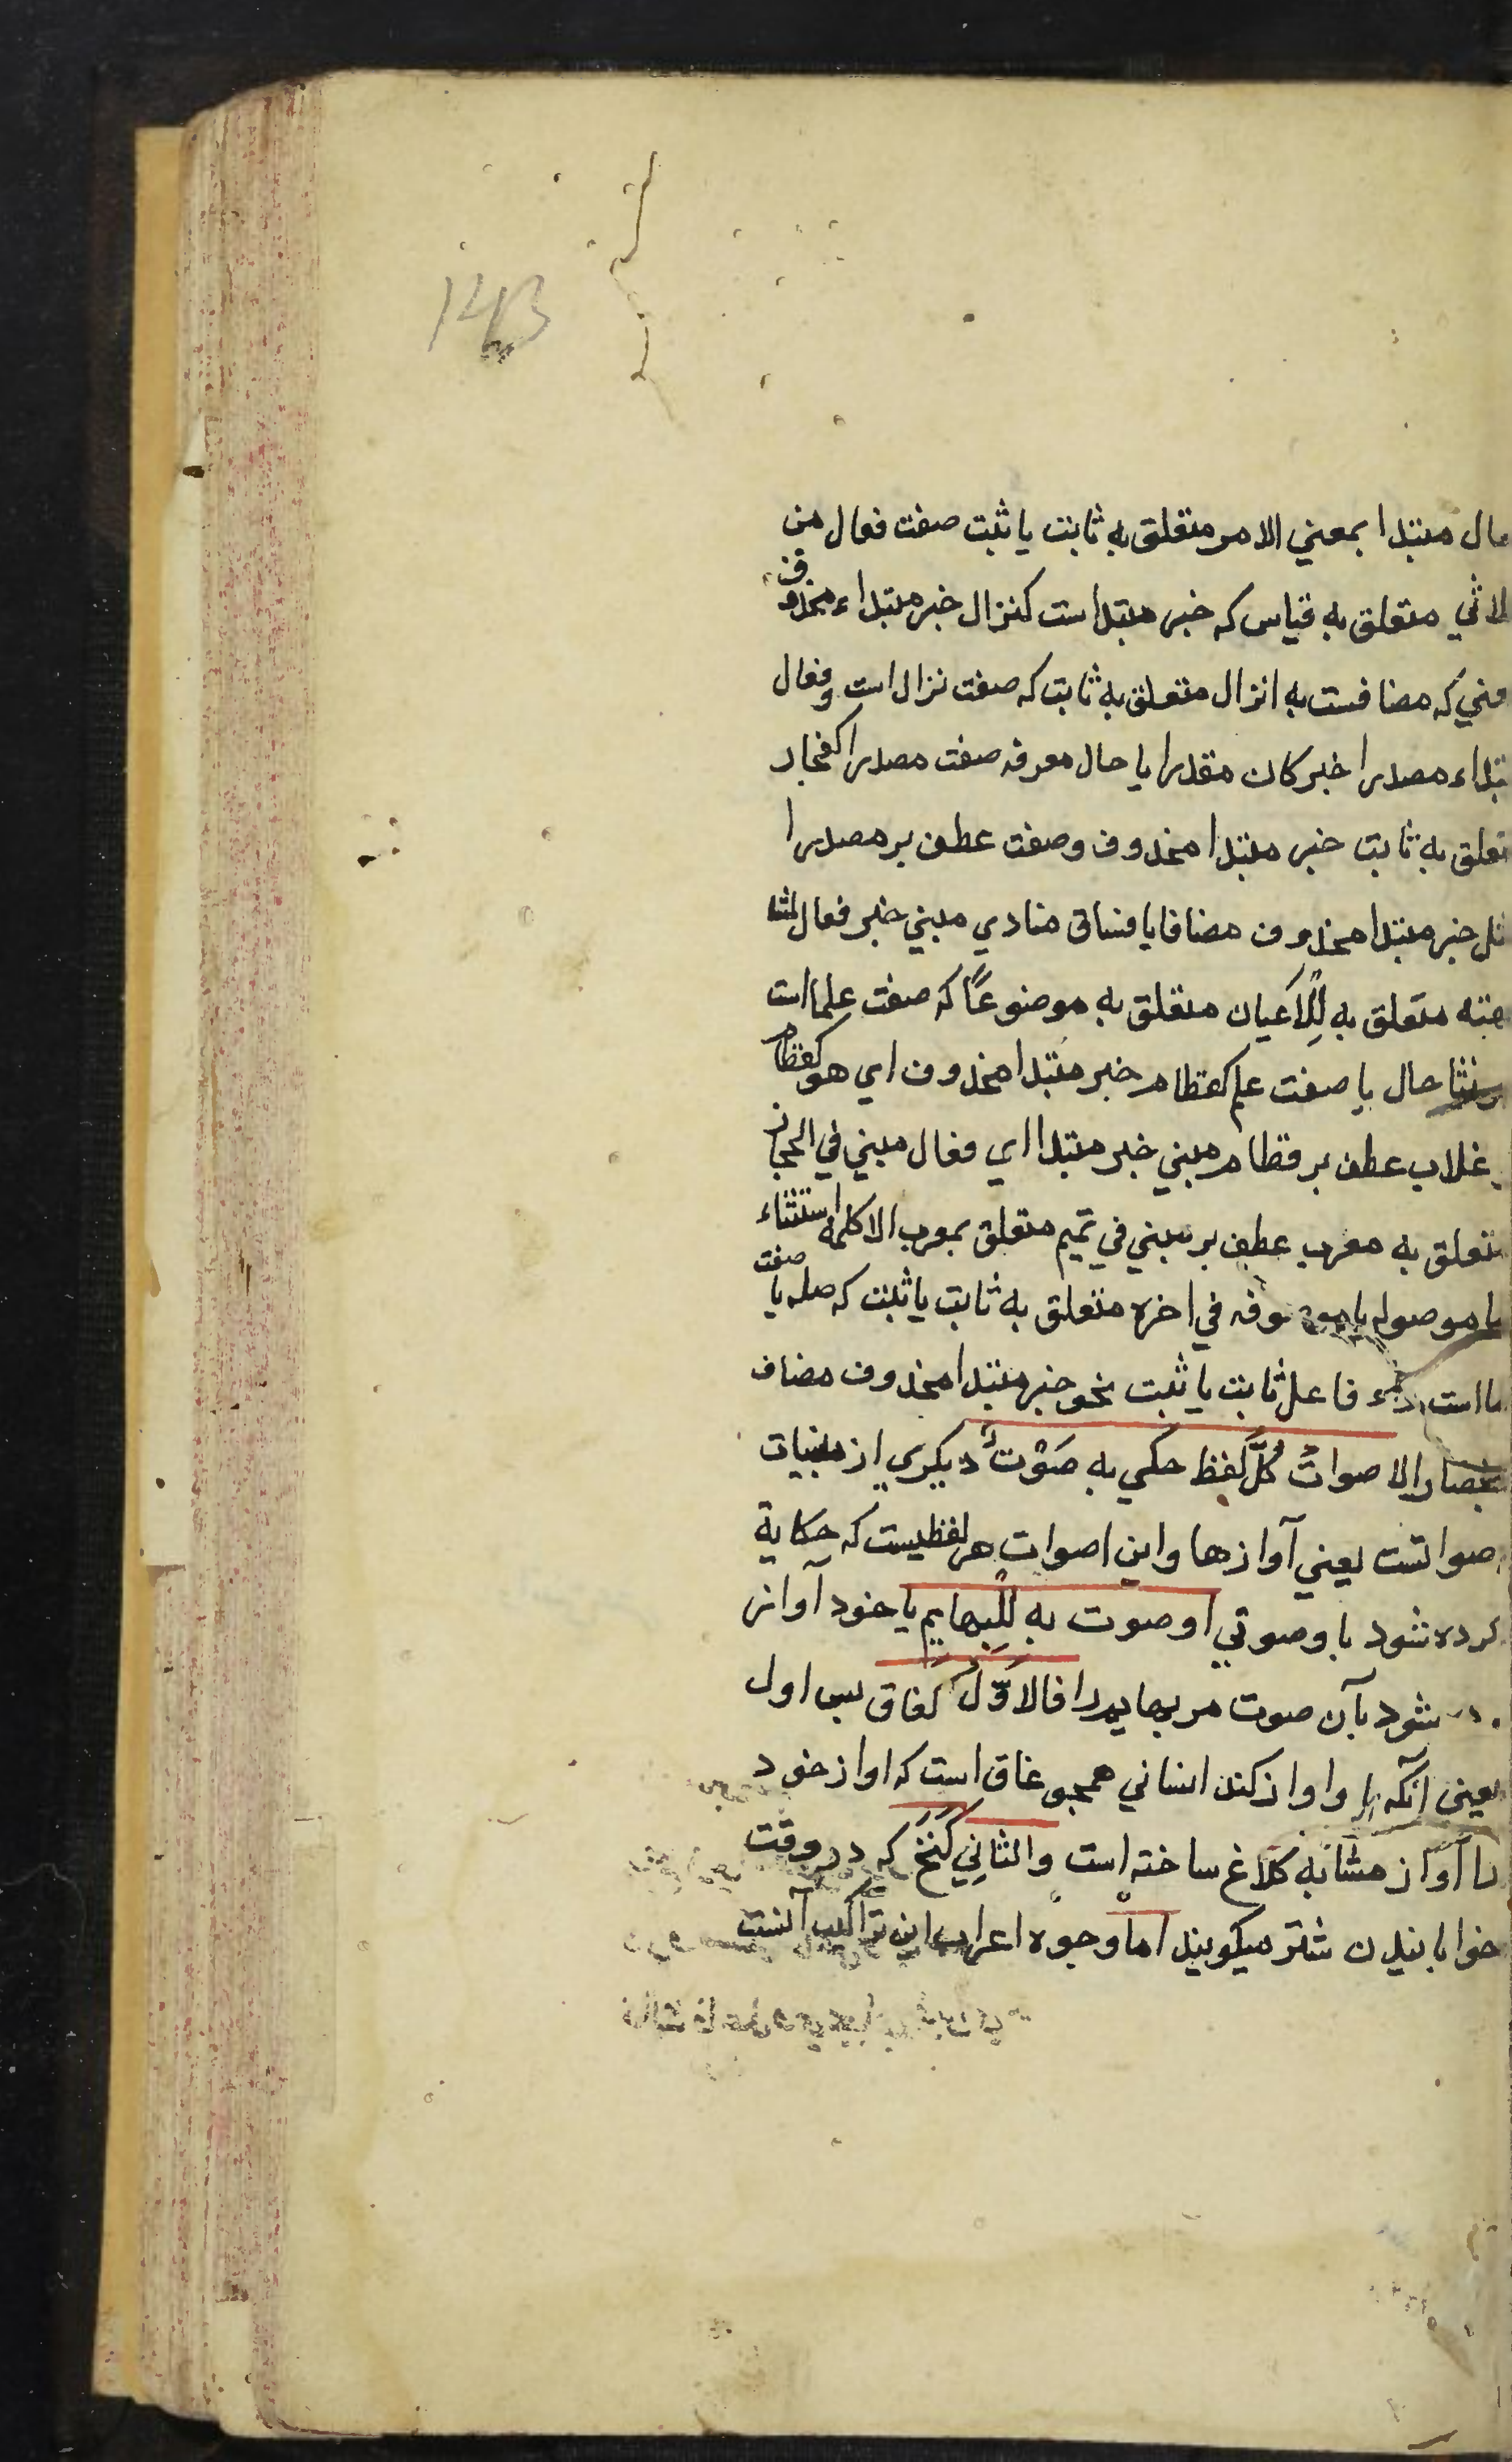 143
مال مبتدا بمعني الامر متعلق به ثابت يا ثبت صفت فعال من
لاثي متعلق به قياس كه خبر مبتداست كنزال خبر مبتداء محذوف
مني كه مضافست به انزال متعلق به ثابت كه صفت نزال است وفعال
تداء مصدرا خبر كان مقدرا يا حال معرفه صفت مصدرا كفجار
تعلق به ثابت خبر مبتدا محذوف وصفت عطف بر مصدرا
ثل خبر مبتدا محذوف مضاف يا فساق منادي مبني خبر فعال
متعلق به لِلْاَعيان متعلق به موضوعًا كه صفت علما است
حال يا صفت علم كقطام خبر مبتدا محذوف اي هو كقطام
غلاب عطف بر قطام مبني خبر مبتدا اي فعال مبني في الحجاز
تعلق به معرب عطف بر مبني في تميم متعلق بمعرب الا كلمهٔ استثناء
يا موصوله يا موصوفه في اخره متعلق به ثابت يا ثبت كه صله يا صفت
ما است راء فاعل ثابت يا ثبت نحو خبر مبتدا محذوف مضاف
الاصواتُ كُلُّ لَفظ حكي به صَوْت ديكري از مبنيات
صواتست يعني آوازها واين اصوات هر لفظيست كه حكاية
كرده شود باو صوتي اوصوت به لِلْبهايم يا خود آواز
شود بآن صوت مر بهايم را فالاوّل كغاق پس اول
يعني آنكه باو اواز كند انساني همچو غاق است كه اواز خود
را آواز مشابه كلاغ ساخته است والثانِي كَنخّ كه در وقت
خوابانيدن شتر ميكويند اما وجوه اعراب اين تراكيب آنست